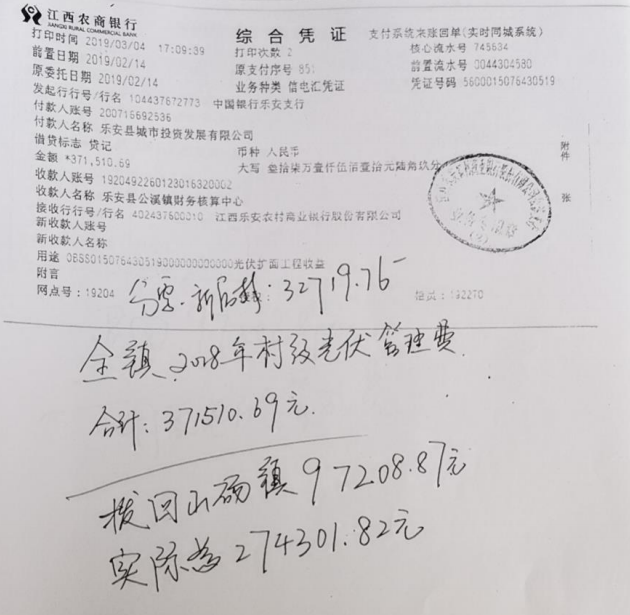 江西农商银行
JIANGXI RURAL COMMERCIAL BANK
综合凭证 支付系统来账回单(实时同城系统)
打印时间 2019/03/04 17:09:39 打印次数 2 核心流水号 745634
前置日期 2019/02/14 原支付序号 851 前置流水号 0044304580
原委托日期 2019/02/14 业务种类 信电汇凭证 凭证号码 5600015076430519
发起行行号/行名 104437672773 中国银行乐安支行
付款人账号 200716692536
付款人名称 乐安县城市投资发展有限公司
借贷标志 贷记 币种 人民币
金额 *371,510.69 大写 叁拾柒万壹仟伍佰壹拾元陆角玖分
附件 张
收款人账号 1920492260123016320002
收款人名称 乐安县公溪镇财务核算中心
接收行行号/行名 402437600310 江西乐安农村商业银行股份有限公司
新收款人账号
新收款人名称
用途 0BSS015076430519000000000000光伏扩面工程收益
附言
网点号：19204 柜员：192270
32719.76
全镇2018年村级光伏管理费
合计：371510.69元.
拨回山砀镇97208.87元
实际为274301.82元